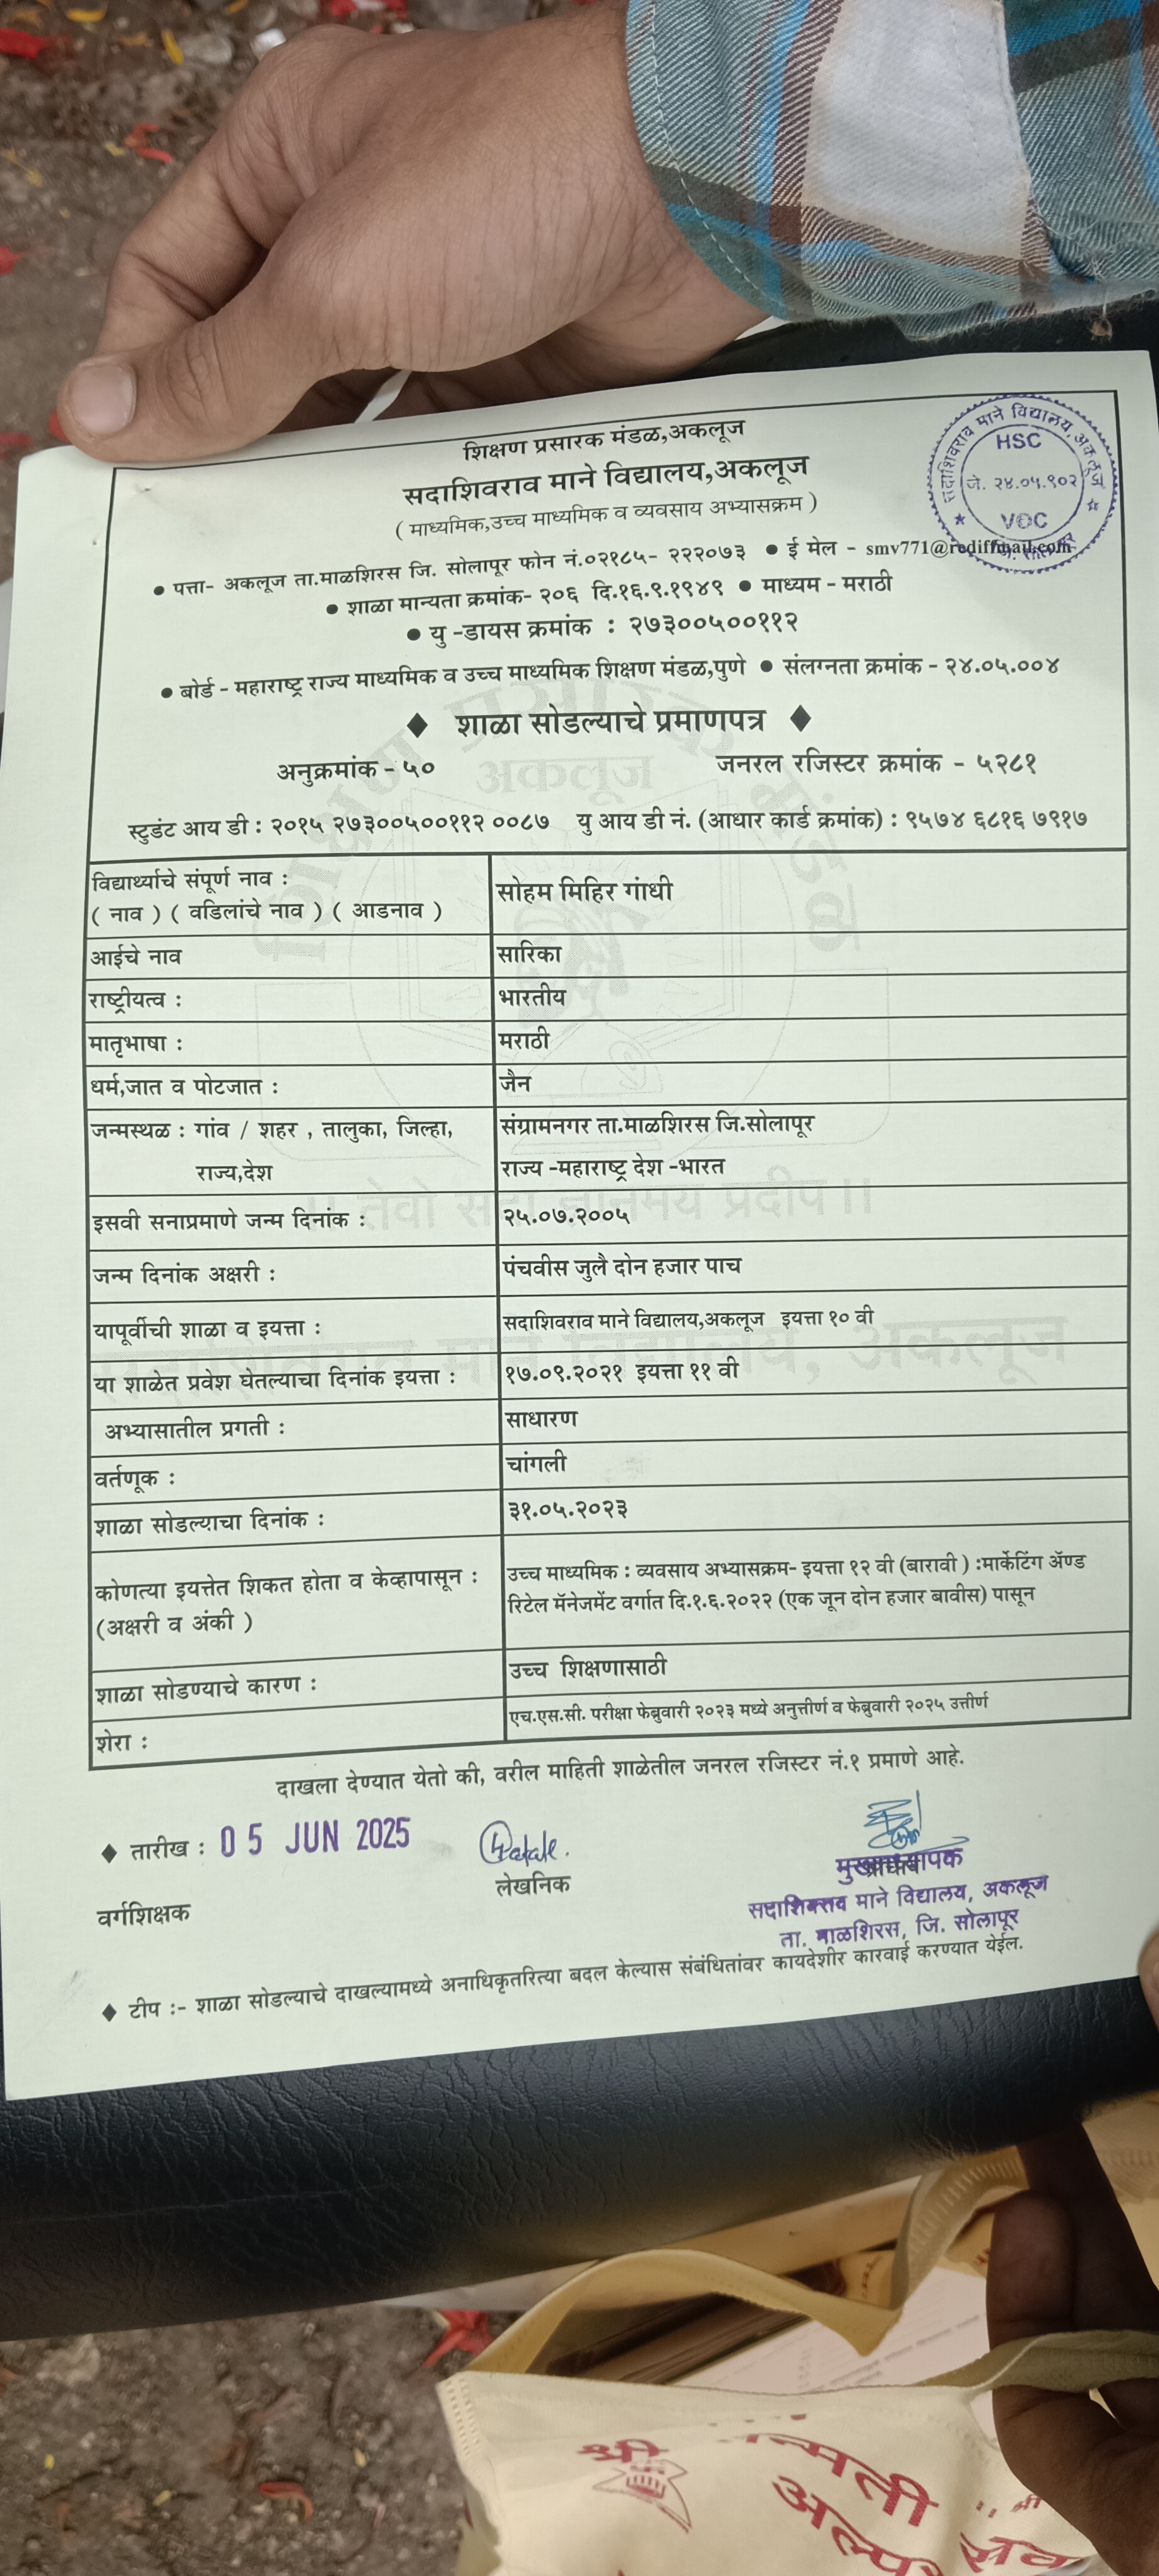 शिक्षण प्रसारक मंडळ,अकलूज
सदाशिवराव माने विद्यालय,अकलूज
( माध्यमिक,उच्च माध्यमिक व व्यवसाय अभ्यासक्रम )
सदाशिवराव माने विद्यालय, अकलूज
HSC
जे. २४.०५.९०२
VOC
● पत्ता- अकलूज ता.माळशिरस जि. सोलापूर फोन नं.०२१८५- २२२०७३ ● ई मेल - smv771@rediffmail.com
● शाळा मान्यता क्रमांक- २०६ दि.१६.९.१९४९ ● माध्यम - मराठी
● यु -डायस क्रमांक : २७३००५००११२
● बोर्ड - महाराष्ट्र राज्य माध्यमिक व उच्च माध्यमिक शिक्षण मंडळ,पुणे ● संलग्नता क्रमांक - २४.०५.००४
◆ शाळा सोडल्याचे प्रमाणपत्र ◆
अनुक्रमांक - ५० जनरल रजिस्टर क्रमांक - ५२८१
स्टुडंट आय डी : २०१५ २७३००५००११२ ००८७ यु आय डी नं. (आधार कार्ड क्रमांक) : ९५७४ ६८१६ ७९१७
विद्यार्थ्याचे संपूर्ण नाव :
( नाव ) ( वडिलांचे नाव ) ( आडनाव ) सोहम मिहिर गांधी
आईचे नाव सारिका
राष्ट्रीयत्व : भारतीय
मातृभाषा : मराठी
धर्म,जात व पोटजात : जैन
जन्मस्थळ : गांव / शहर , तालुका, जिल्हा, संग्रामनगर ता.माळशिरस जि.सोलापूर
राज्य,देश राज्य -महाराष्ट्र देश -भारत
इसवी सनाप्रमाणे जन्म दिनांक : २५.०७.२००५
जन्म दिनांक अक्षरी : पंचवीस जुलै दोन हजार पाच
यापूर्वीची शाळा व इयत्ता : सदाशिवराव माने विद्यालय,अकलूज इयत्ता १० वी
या शाळेत प्रवेश घेतल्याचा दिनांक इयत्ता : १७.०९.२०२१ इयत्ता ११ वी
अभ्यासातील प्रगती : साधारण
वर्तणूक : चांगली
शाळा सोडल्याचा दिनांक : ३१.०५.२०२३
कोणत्या इयत्तेत शिकत होता व केव्हापासून : उच्च माध्यमिक : व्यवसाय अभ्यासक्रम- इयत्ता १२ वी (बारावी ) :मार्केटिंग ॲण्ड
(अक्षरी व अंकी ) रिटेल मॅनेजमेंट वर्गात दि.१.६.२०२२ (एक जून दोन हजार बावीस) पासून
शाळा सोडण्याचे कारण : उच्च शिक्षणासाठी
शेरा : एच.एस.सी. परीक्षा फेब्रुवारी २०२३ मध्ये अनुत्तीर्ण व फेब्रुवारी २०२५ उत्तीर्ण
दाखला देण्यात येतो की, वरील माहिती शाळेतील जनरल रजिस्टर नं.१ प्रमाणे आहे.
◆ तारीख : 05 JUN 2025
वर्गशिक्षक लेखनिक मुख्याध्यापक
सदाशिवराव माने विद्यालय, अकलूज
ता. माळशिरस, जि. सोलापूर
◆ टीप :- शाळा सोडल्याचे दाखल्यामध्ये अनाधिकृतरित्या बदल केल्यास संबंधितांवर कायदेशीर कारवाई करण्यात येईल.
श्री